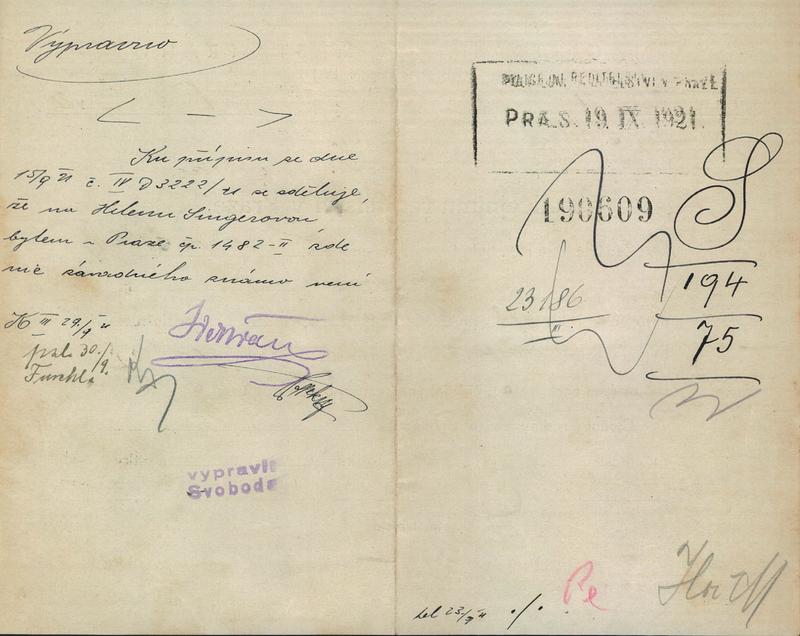 Vypraveno
Ku přípisu ze dne
15/9 21 č. IV D 3222/21 se sděluje,
že na Helenu Singerovou
bytem v Praze čp. 1482-II zde
nic závadného známo není
III 29/9 21
30./9.
vypravil
Svoboda
POLICEJNÍ ŘEDITELSTVÍ V PRAZE
PRÆS. 19. IX. 1921
190609
S
194
23186
75
23/9 ./.